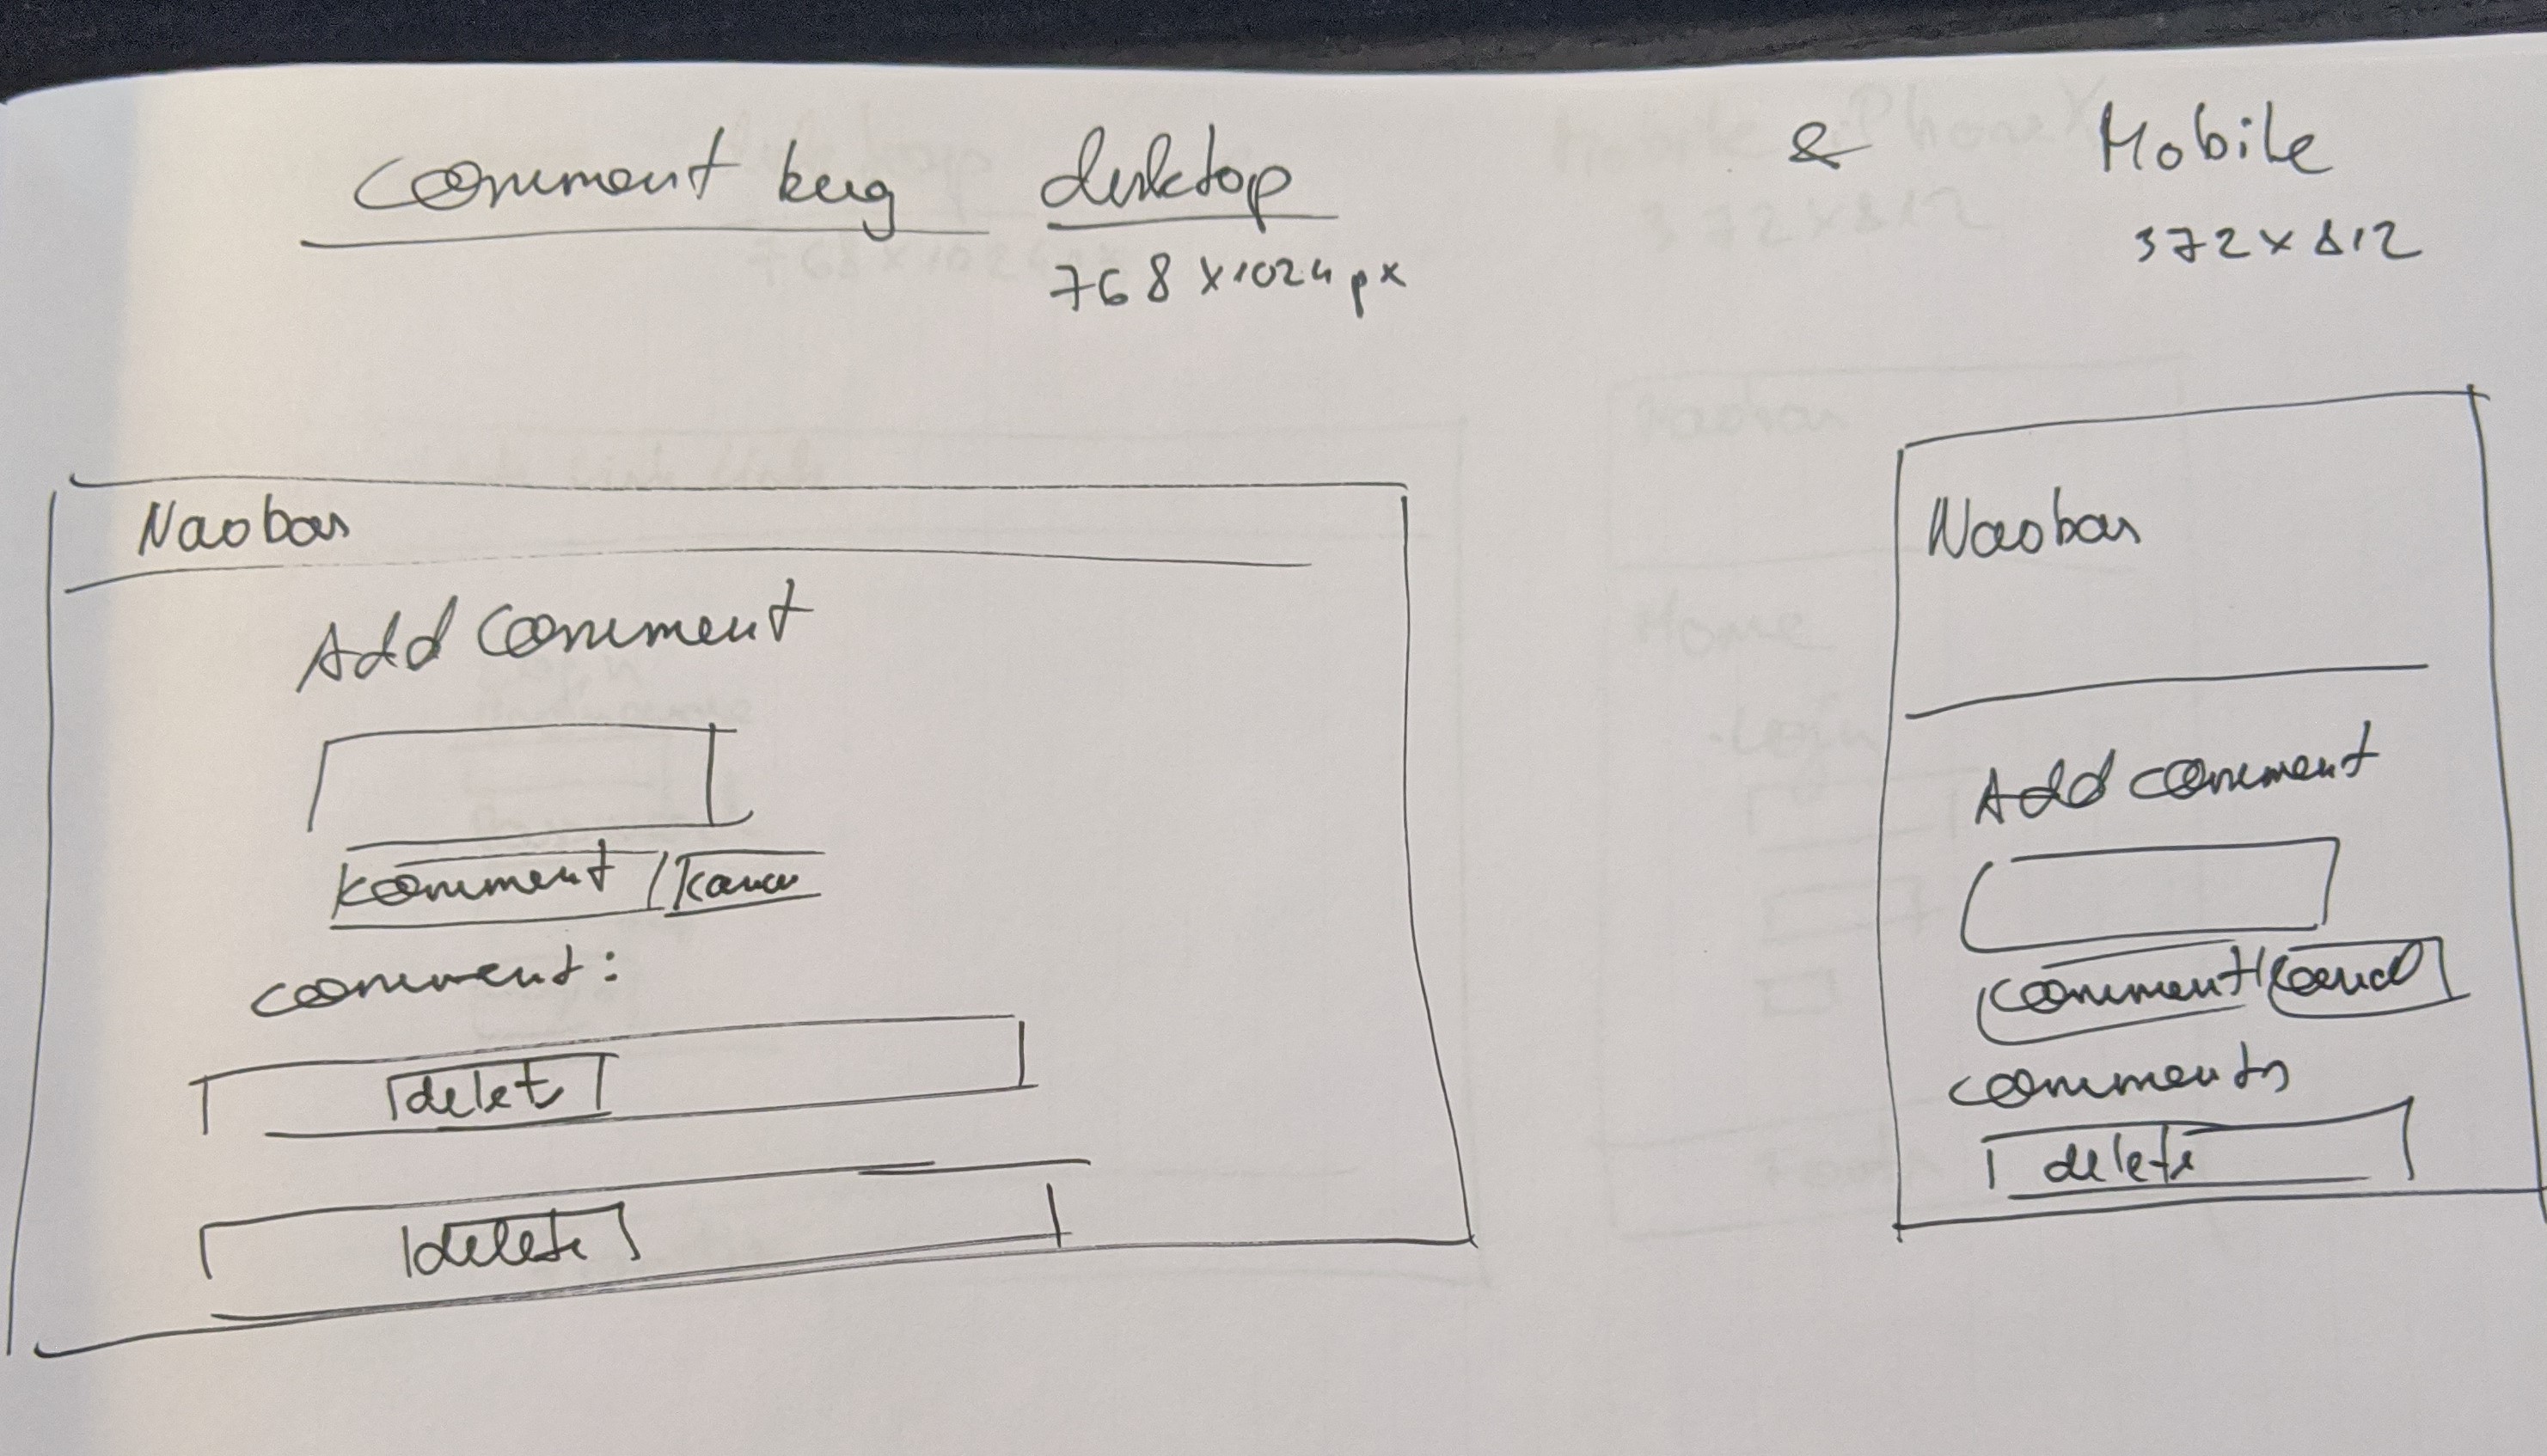 comment bug desktop & Mobile
768 x 1024 px
372 x 812
Navbar
Add Comment
komment
comment:
delet
delete
Navbar
Add comment
comment cancel
comments
delete